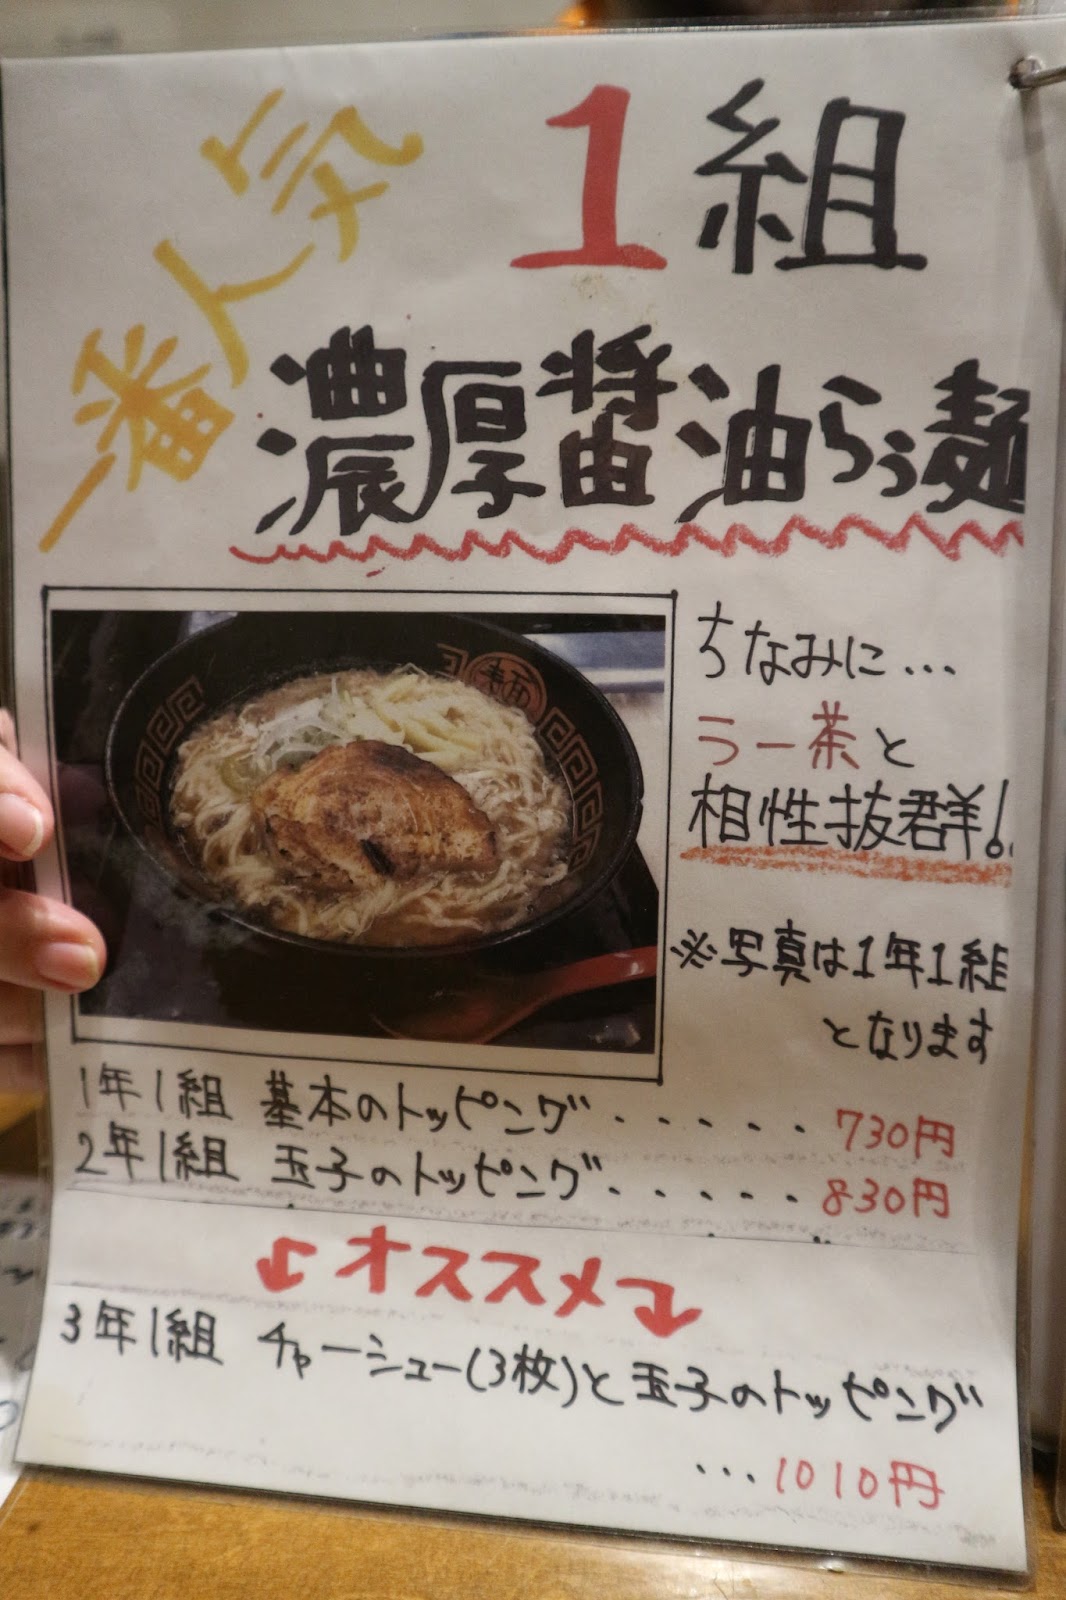 一番人気
1組
濃厚醤油らぅ麺
麺
ちなみに…
ラー茶と
相性抜群!
※写真は1年1組
となります
1年1組 基本のトッピング・・・・・・730円
2年1組 玉子のトッピング・・・・・・830円
オススメ
3年1組 チャーシュー(3枚)と玉子のトッピング
…1010円